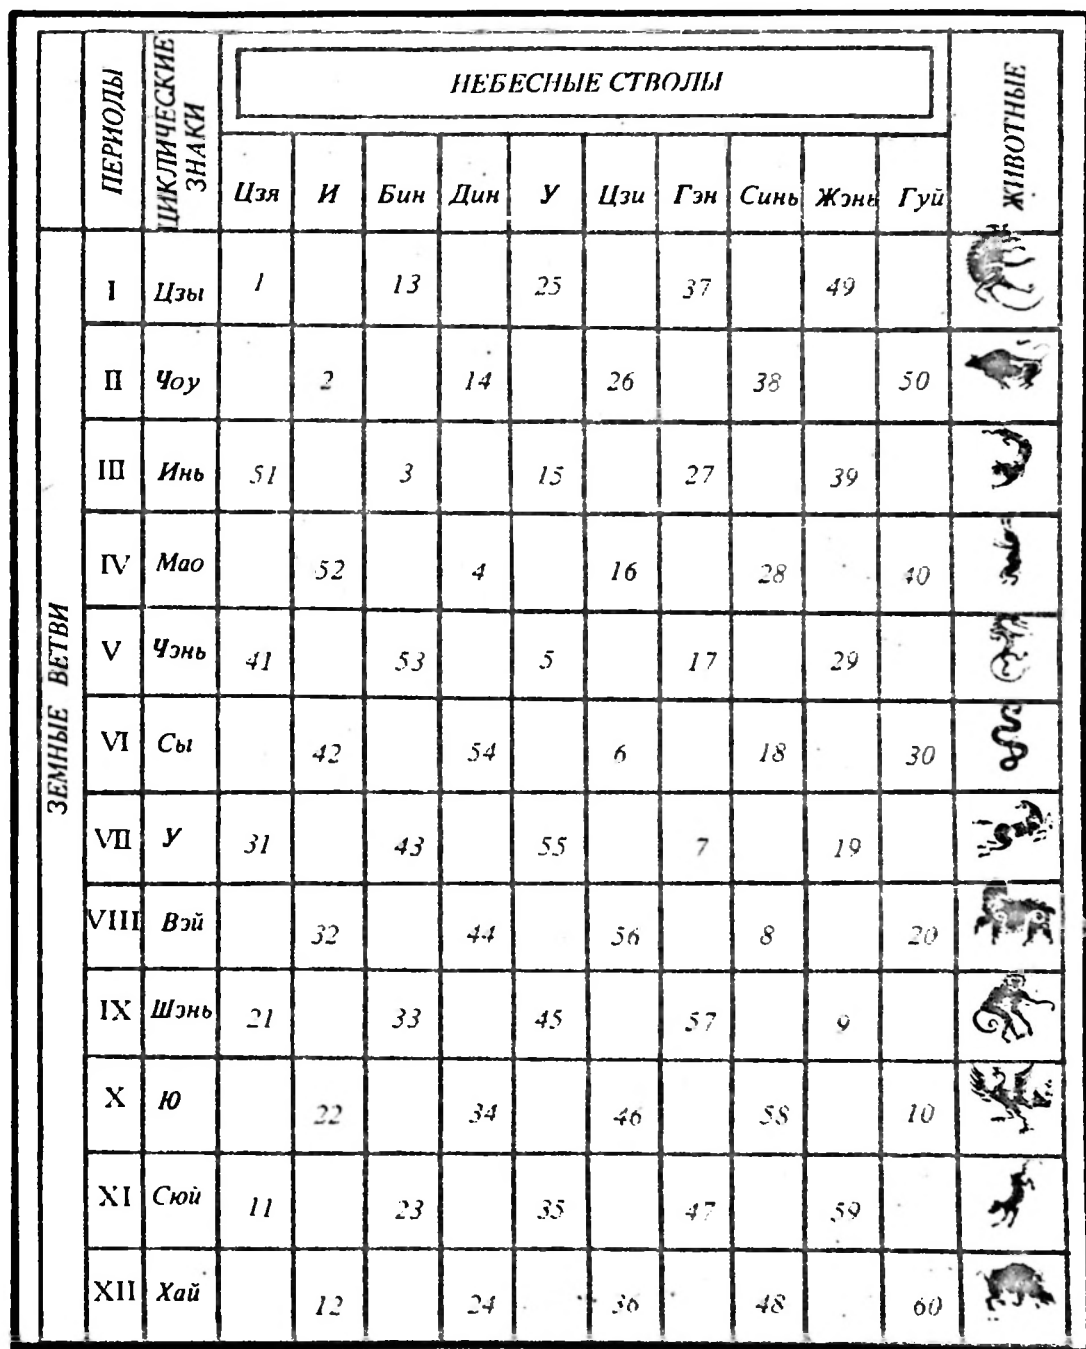 ПЕРИОДЫ
ЦИКЛИЧЕСКИЕ
ЗНАКИ
НЕБЕСНЫЕ СТВОЛЫ
ЖИВОТНЫЕ
Цзя И Бин Дин У Цзи Гэн Синь Жэнь Гуй
ЗЕМНЫЕ ВЕТВИ
I Цзы 1 13 25 37 49
II Чоу 2 14 26 38 50
III Инь 51 3 15 27 39
IV Мао 52 4 16 28 40
V Чэнь 41 53 5 17 29
VI Сы 42 54 6 18 30
VII У 31 43 55 7 19
VIII Вэй 32 44 56 8 20
IX Шэнь 21 33 45 57 9
X Ю 22 34 46 58 10
XI Сюй 11 23 35 47 59
XII Хай 12 24 36 48 60